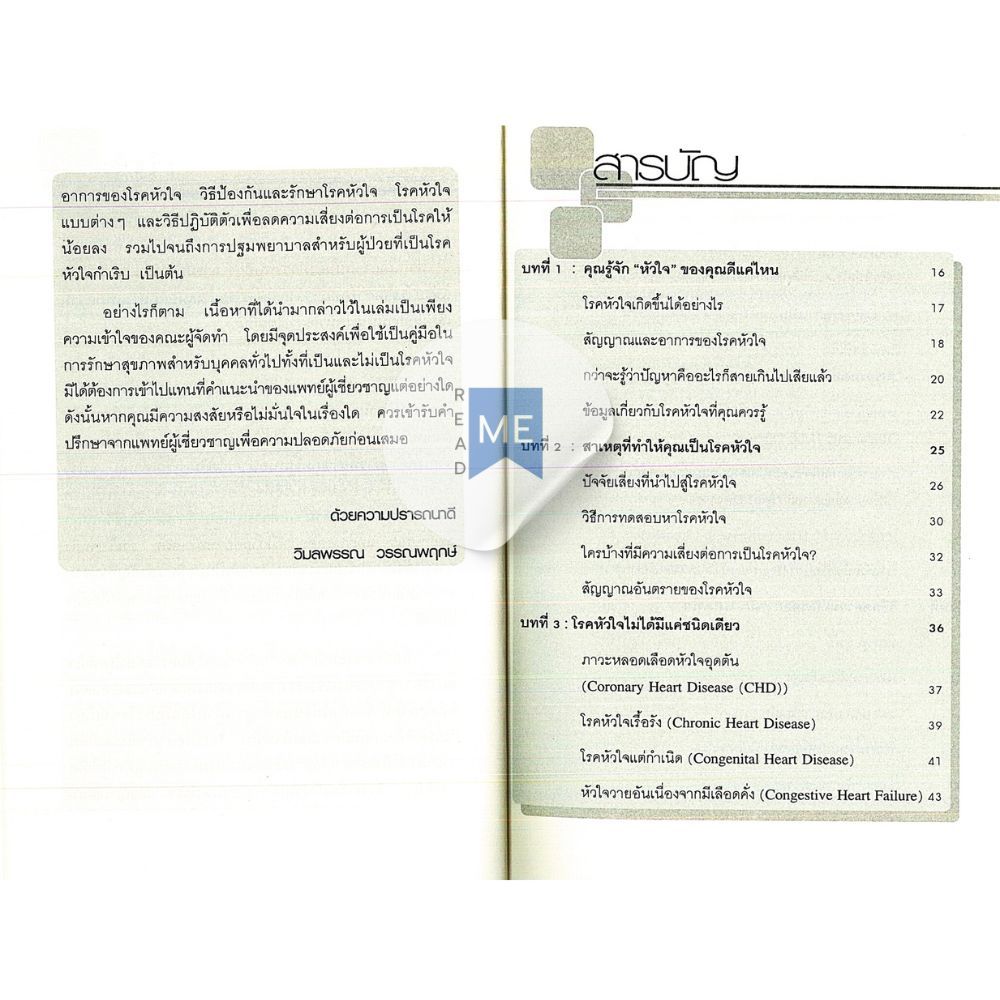 อาการของโรคหัวใจ วิธีป้องกันและรักษาโรคหัวใจ โรคหัวใจ
แบบต่างๆ และวิธีปฏิบัติตัวเพื่อลดความเสี่ยงต่อการเป็นโรคให้
น้อยลง รวมไปจนถึงการปฐมพยาบาลสำหรับผู้ป่วยที่เป็นโรค
หัวใจกำเริบ เป็นต้น
อย่างไรก็ตาม เนื้อหาที่ได้นำมากล่าวไว้ในเล่มเป็นเพียง
ความเข้าใจของคณะผู้จัดทำ โดยมีจุดประสงค์เพื่อใช้เป็นคู่มือใน
การรักษาสุขภาพสำหรับบุคคลทั่วไปทั้งที่เป็นและไม่เป็นโรคหัวใจ
มิได้ต้องการเข้าไปแทนที่คำแนะนำของแพทย์ผู้เชี่ยวชาญแต่อย่างใด
ดังนั้นหากคุณมีความสงสัยหรือไม่มั่นใจในเรื่องใด ควรเข้ารับคำ
ปรึกษาจากแพทย์ผู้เชี่ยวชาญเพื่อความปลอดภัยก่อนเสมอ
ด้วยความปรารถนาดี
วิมลพรรณ วรรณพฤกษ์
READ
ME
สารบัญ
บทที่ 1 : คุณรู้จัก “หัวใจ” ของคุณดีแค่ไหน 16
โรคหัวใจเกิดขึ้นได้อย่างไร 17
สัญญาณและอาการของโรคหัวใจ 18
กว่าจะรู้ว่าปัญหาคืออะไรก็สายเกินไปเสียแล้ว 20
ข้อมูลเกี่ยวกับโรคหัวใจที่คุณควรรู้ 22
บทที่ 2 : สาเหตุที่ทำให้คุณเป็นโรคหัวใจ 25
ปัจจัยเสี่ยงที่นำไปสู่โรคหัวใจ 26
วิธีการทดสอบหาโรคหัวใจ 30
ใครบ้างที่มีความเสี่ยงต่อการเป็นโรคหัวใจ? 32
สัญญาณอันตรายของโรคหัวใจ 33
บทที่ 3 : โรคหัวใจไม่ได้มีแค่ชนิดเดียว 36
ภาวะหลอดเลือดหัวใจอุดตัน
(Coronary Heart Disease (CHD)) 37
โรคหัวใจเรื้อรัง (Chronic Heart Disease) 39
โรคหัวใจแต่กำเนิด (Congenital Heart Disease) 41
หัวใจวายอันเนื่องจากมีเลือดคั่ง (Congestive Heart Failure) 43